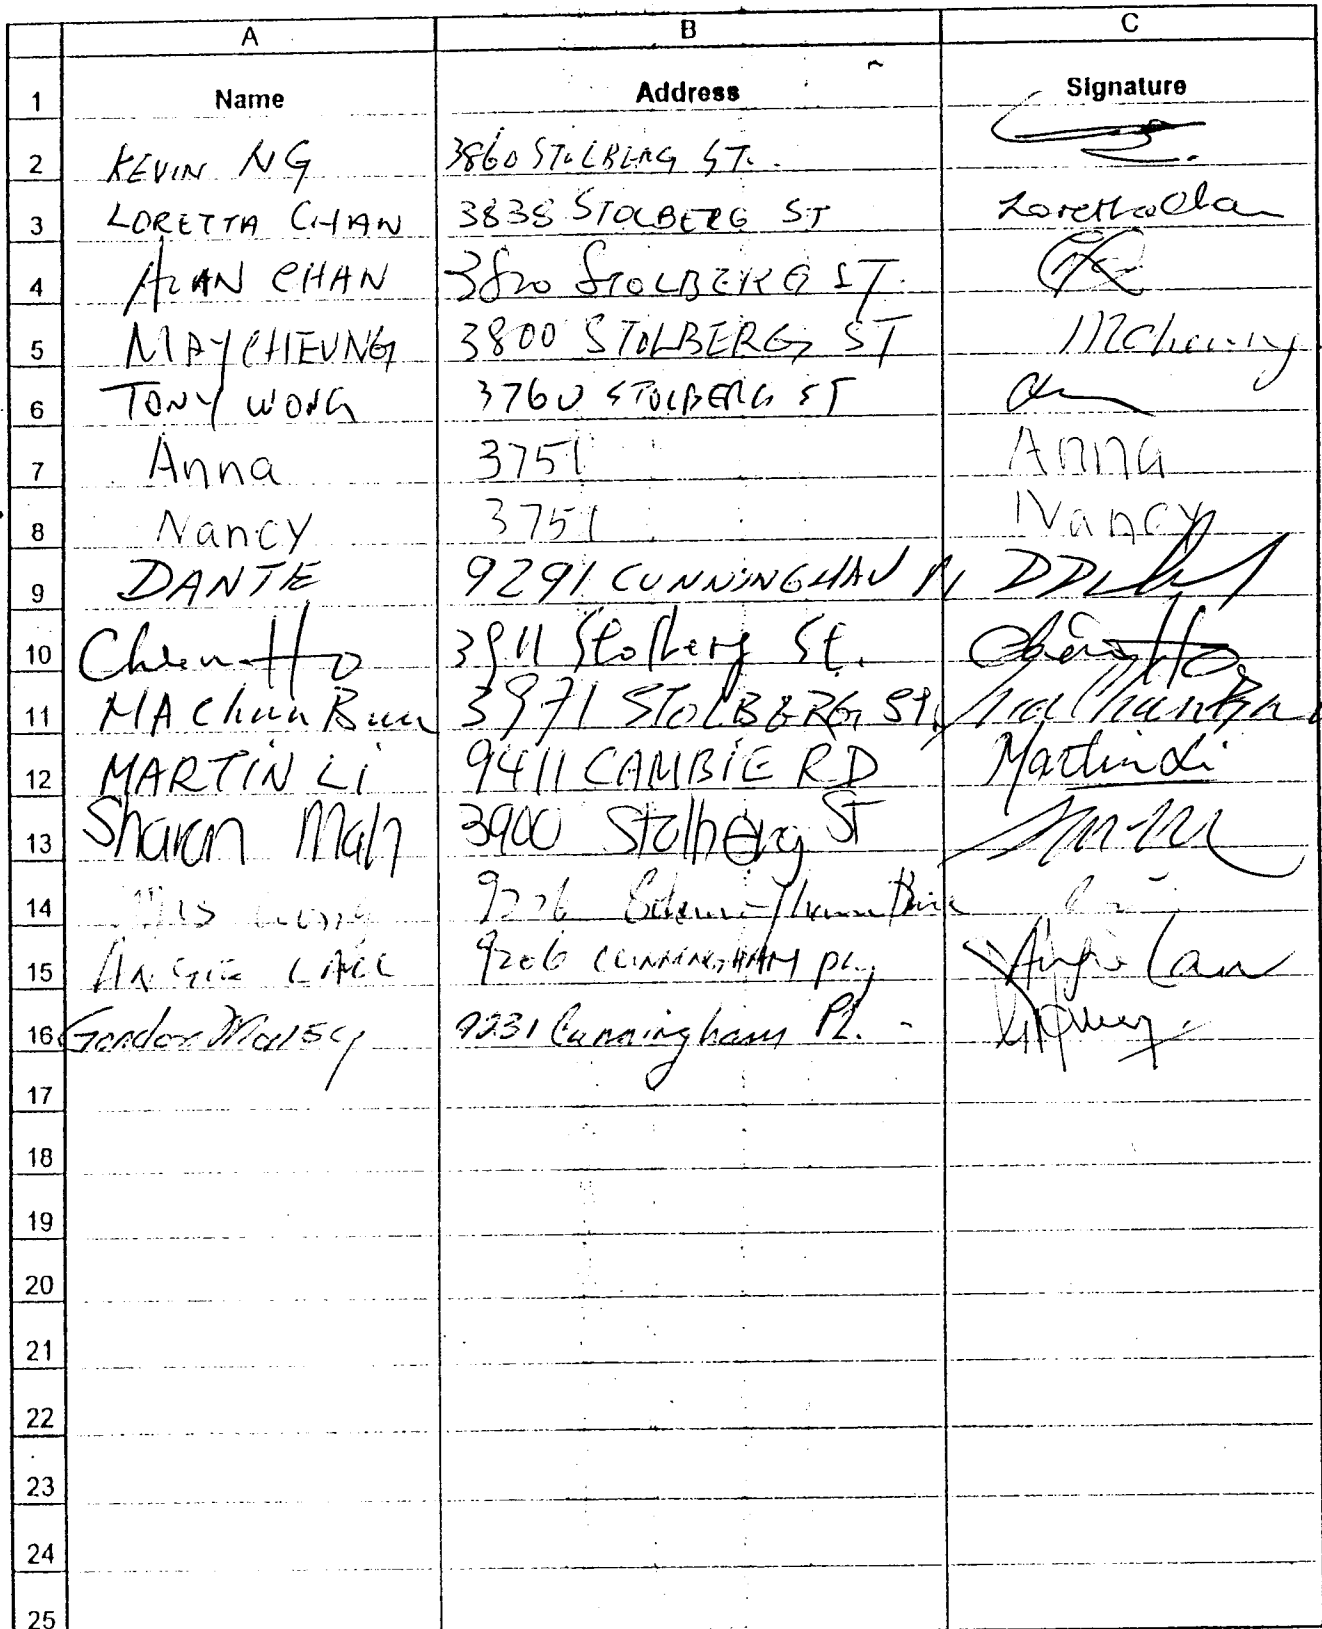 A B C
1 Name Address Signature
2 KEVIN NG 3860 STOLBERG ST.
3 LORETTA CHAN 3838 STOLBERG ST Loretta Chan
4 ALAN CHAN 3820 STOLBERG ST.
5 MAY CHEUNG 3800 STOLBERG ST MCheung
6 TONY WONG 3760 STOLBERG ST
7 Anna 3751 Anna
8 Nancy 3751 Nancy
9 DANTE 9291 CUNNINGHAM Pl
10 Chien Ho 3911 Stolberg St.
11 MA Chun Bun 3971 STOLBERG ST.
12 MARTIN Li 9411 CAMBIE RD Martin Li
13 Sharon Mah 3900 Stolberg St
14 9226
15 ANGIE LAU 9206 CUNNINGHAM PL, Angie Lau
16 Gordon 9231 Cunningham Pl.
17
18
19
20
21
22
23
24
25